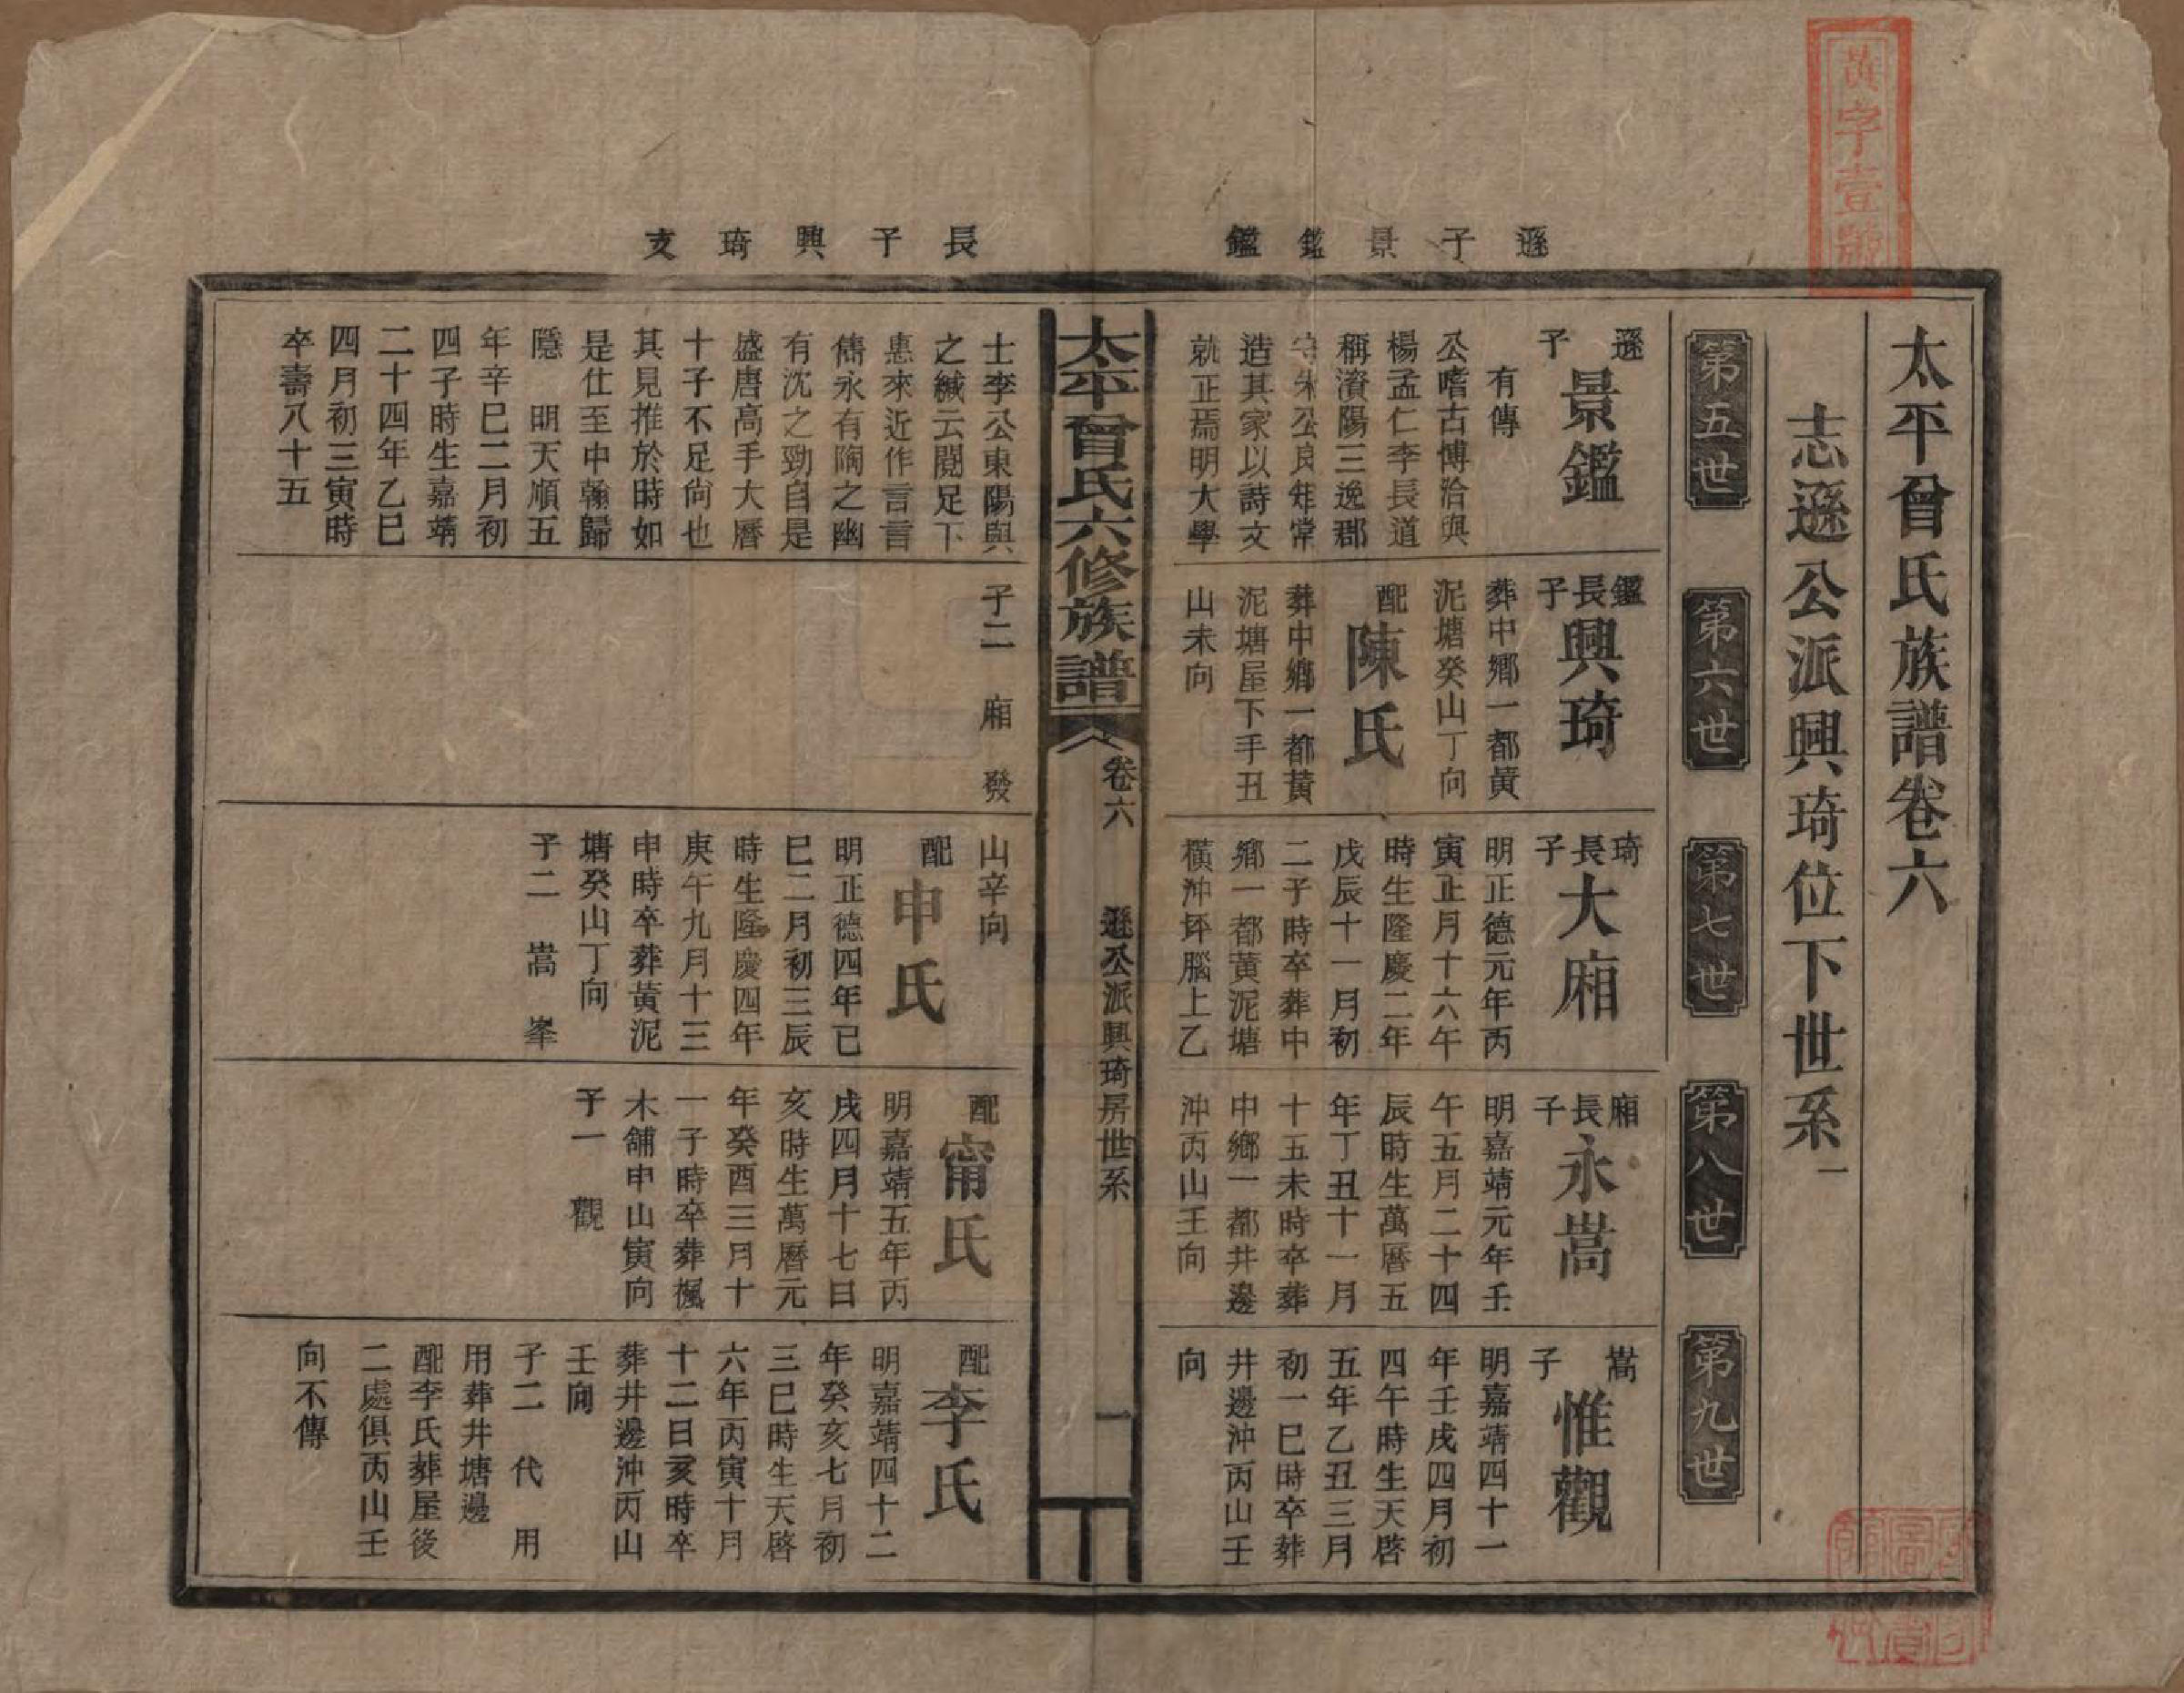 黃字壹號
遜子景鑑鑑
長子興琦支
太平曾氏族譜卷六
志遜公派興琦位下世系一
第五世
遜子景鑑
有傳
公嗜古博洽與
楊孟仁李長道
稱濱陽三逸郡
守朱公良矩常
造其家以詩文
就正焉明大學
士李公東陽與
之緘云閱足下
惠來近作言言
儁永有陶之幽
有沈之勁自是
盛唐高手大曆
十子不足尙也
其見推於時如
是仕至中翰歸
隱 明天順五
年辛巳二月初
四子時生嘉靖
二十四年乙巳
四月初三寅時
卒壽八十五
第六世
鑑長子興琦
葬中鄉一都黃
泥塘癸山丁向
配陳氏
葬中鄉一都黃
泥塘屋下手丑
山未向
子二 廂 發
第七世
琦長子大廂
明正德元年丙
寅正月十六午
時生隆慶二年
戊辰十一月初
二子時卒葬中
鄉一都黃泥塘
橫沖坪腦上乙
山辛向
配申氏
明正德四年已
巳二月初三辰
時生隆慶四年
庚午九月十三
申時卒葬黃泥
塘癸山丁向
子二 嵩 峯
第八世
廂長子永嵩
明嘉靖元年壬
午五月二十四
辰時生萬曆五
年丁丑十一月
十五未時卒葬
中鄉一都井邊
沖丙山壬向
配甯氏
明嘉靖五年丙
戌四月十七日
亥時生萬曆元
年癸酉三月十
一子時卒葬楓
木舖申山寅向
子一 觀
第九世
嵩子惟觀
明嘉靖四十一
年壬戌四月初
四午時生天啓
五年乙丑三月
初一巳時卒葬
井邊沖丙山壬
向
配李氏
明嘉靖四十二
年癸亥七月初
三巳時生天啓
六年丙寅十月
十二日亥時卒
葬井邊沖丙山
壬向
子二 代 用
用葬井塘邊
配李氏葬屋後
二處俱丙山壬
向不傳
太平曾氏六修族譜
卷六
遜公派興琦房世系
一